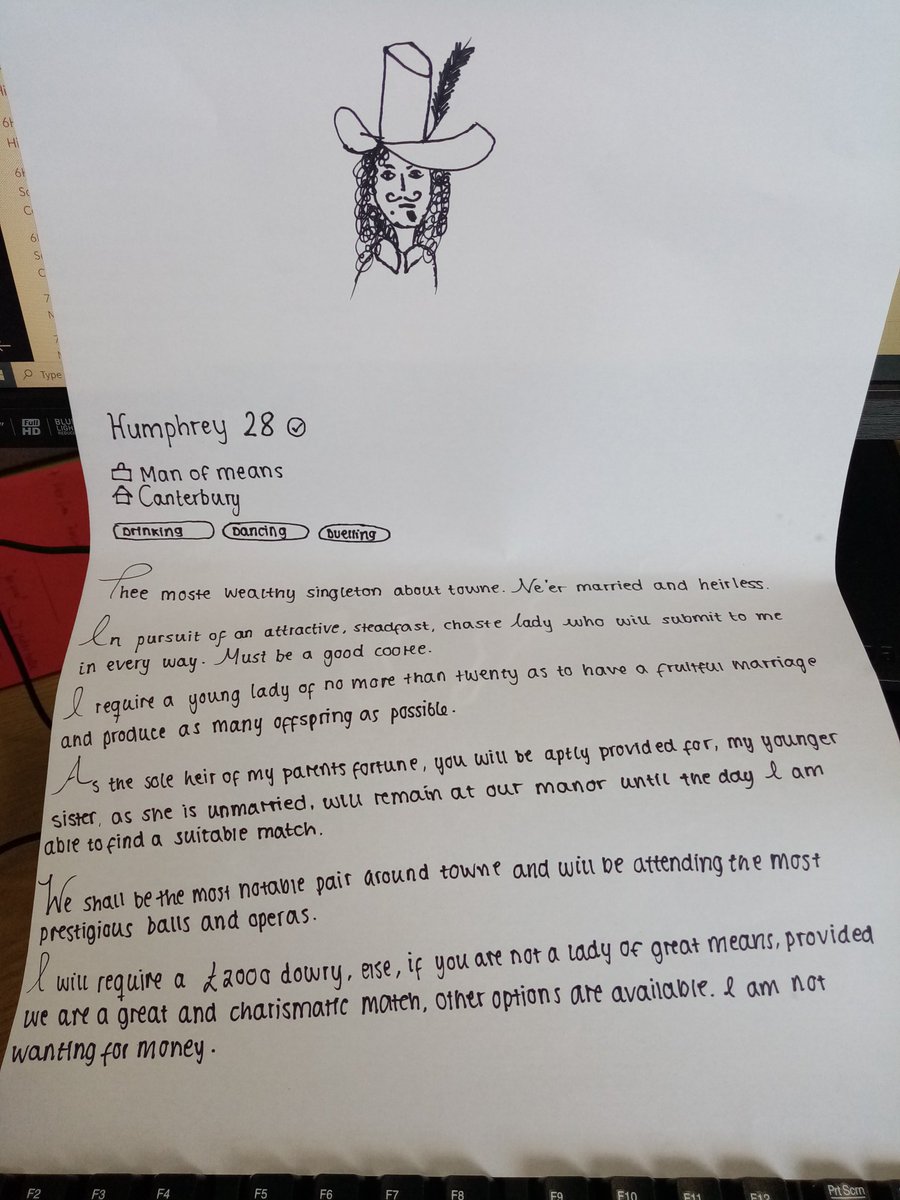 6H
Hi
6H
Se
C
6H
Se
C
7
N
7
Type
Full
HD
BLUE
LIGHT
Humphrey 28
Man of means
Canterbury
Drinking Dancing Duelling
Thee moste wealthy singleton about towne. Ne'er married and heirless.
In pursuit of an attractive, steadfast, chaste lady who will submit to me
in every way. Must be a good cooke.
I require a young lady of no more than twenty as to have a fruitful marriage
and produce as many offspring as possible.
As the sole heir of my parents fortune, you will be aptly provided for, my younger
sister, as she is unmarried, will remain at our manor until the day I am
able to find a suitable match.
We shall be the most notable pair around towne and will be attending the most
prestigious balls and operas.
I will require a £2000 dowry, else, if you are not a lady of great means, provided
we are a great and charismatic match, other options are available. I am not
wanting for money.
F2 F3 F4 F5 F6 F7 F8 F9 F10 F11 F12 PrtScrn